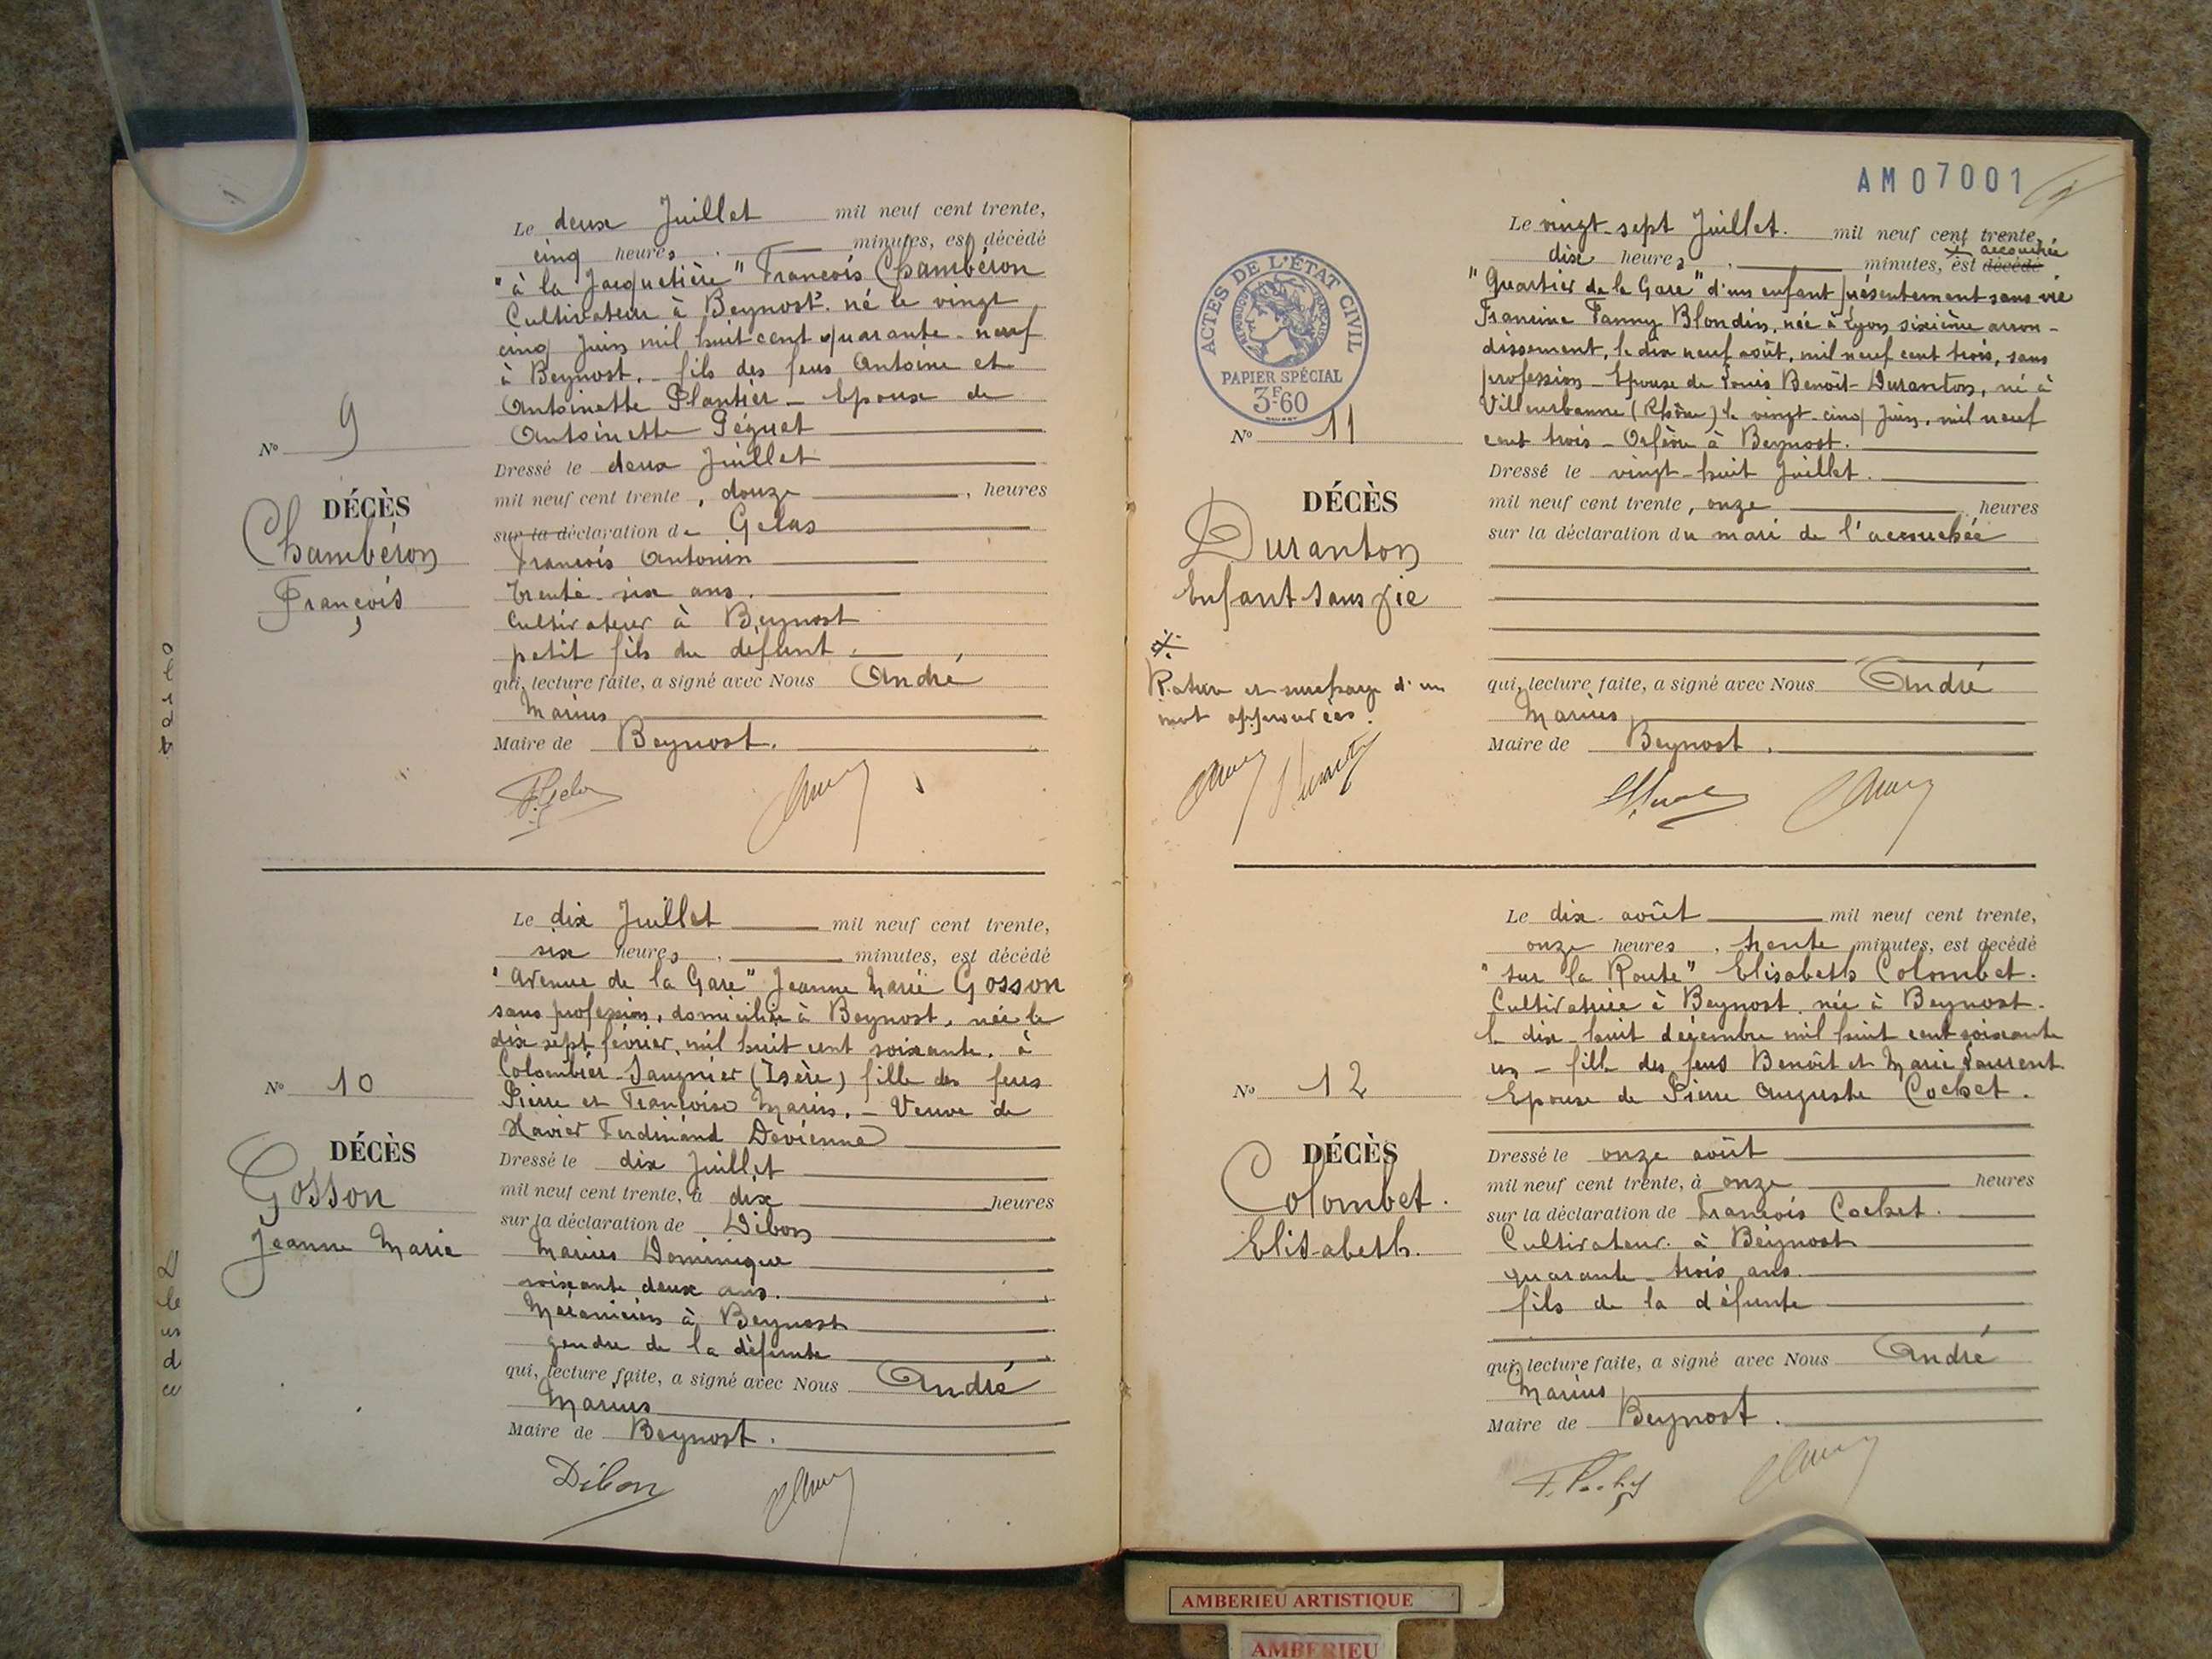 Le deux Juillet mil neuf cent trente,
cinq heures, minutes, est décédé
"à la Jacquetière" François Chambéron
Cultivateur à Beynost. né le vingt
cinq Juin mil huit cent quarante-neuf
à Beynost. - fils des feus Antoine et
Antoinette Plantier - Epoux de
Antoinette Péguet
Dressé le deux Juillet
mil neuf cent trente, douze, heures
sur la déclaration de Gelas
François Antonin
trente-six ans.
Cultivateur à Beynost
petit fils du défunt.
qui, lecture faite, a signé avec Nous André
Marius
Maire de Beynost.
N° 9
DÉCÈS
Chambéron
François
Le dix Juillet mil neuf cent trente,
six heures, minutes, est décédé
"Avenue de la Gare" Jeanne Marie Gosson
sans profession, domiciliée à Beynost, née le
dix sept février, mil huit cent soixante, à
Colombier-Saugnier (Isère) fille des feus
Pierre et Françoise Marin. - Veuve de
Xavier Ferdinand Dévienne
Dressé le dix Juillet
mil neuf cent trente, à dix heures
sur la déclaration de Dibon
Marius Dominique
soixante deux ans.
Mécanicien à Beynost
gendre de la défunte
qui, lecture faite, a signé avec Nous André
Marius
Maire de Beynost.
Dibon
N° 10
DÉCÈS
Gosson
Jeanne Marie
AM07001
ACTES DE L'ÉTAT CIVIL
RÉPUBLIQUE FRANÇAISE
PAPIER SPÉCIAL
3F60
Le vingt-sept Juillet. mil neuf cent trente,
accouchée
dix heures, minutes, est décédé
"Quartier de la Gare" d'un enfant présentement sans vie
Francine Fanny Blondin, née à Lyon sixième arron-
dissement, le dix neuf août, mil neuf cent trois, sans
profession - Epouse de Louis Benoît Duranton, né à
Villeurbanne (Rhône) le vingt-cinq Juin, mil neuf
cent trois - Orfèvre à Beynost.
Dressé le vingt-huit Juillet.
mil neuf cent trente, onze heures
sur la déclaration du mari de l'accouchée
qui, lecture faite, a signé avec Nous André
Marius
Maire de Beynost.
N° 11
DÉCÈS
Duranton
Enfant sans vie
Rature et surcharge d'un
mot approuvées.
Le dix août mil neuf cent trente,
onze heures, trente minutes, est décédé
"sur la Route" Elisabeth Colombet.
Cultivatrice à Beynost. née à Beynost.
le dix-huit décembre mil huit cent soixante
un - fille des feus Benoît et Marie Laurent
Epouse de Pierre Auguste Cochet.
Dressé le onze août
mil neuf cent trente, à onze heures
sur la déclaration de François Cochet.
Cultivateur à Beynost
quarante-trois ans.
fils de la défunte
qui, lecture faite, a signé avec Nous André
Marius
Maire de Beynost.
N° 12
DÉCÈS
Colombet.
Elisabeth.
AMBERIEU ARTISTIQUE
AMBERIEU